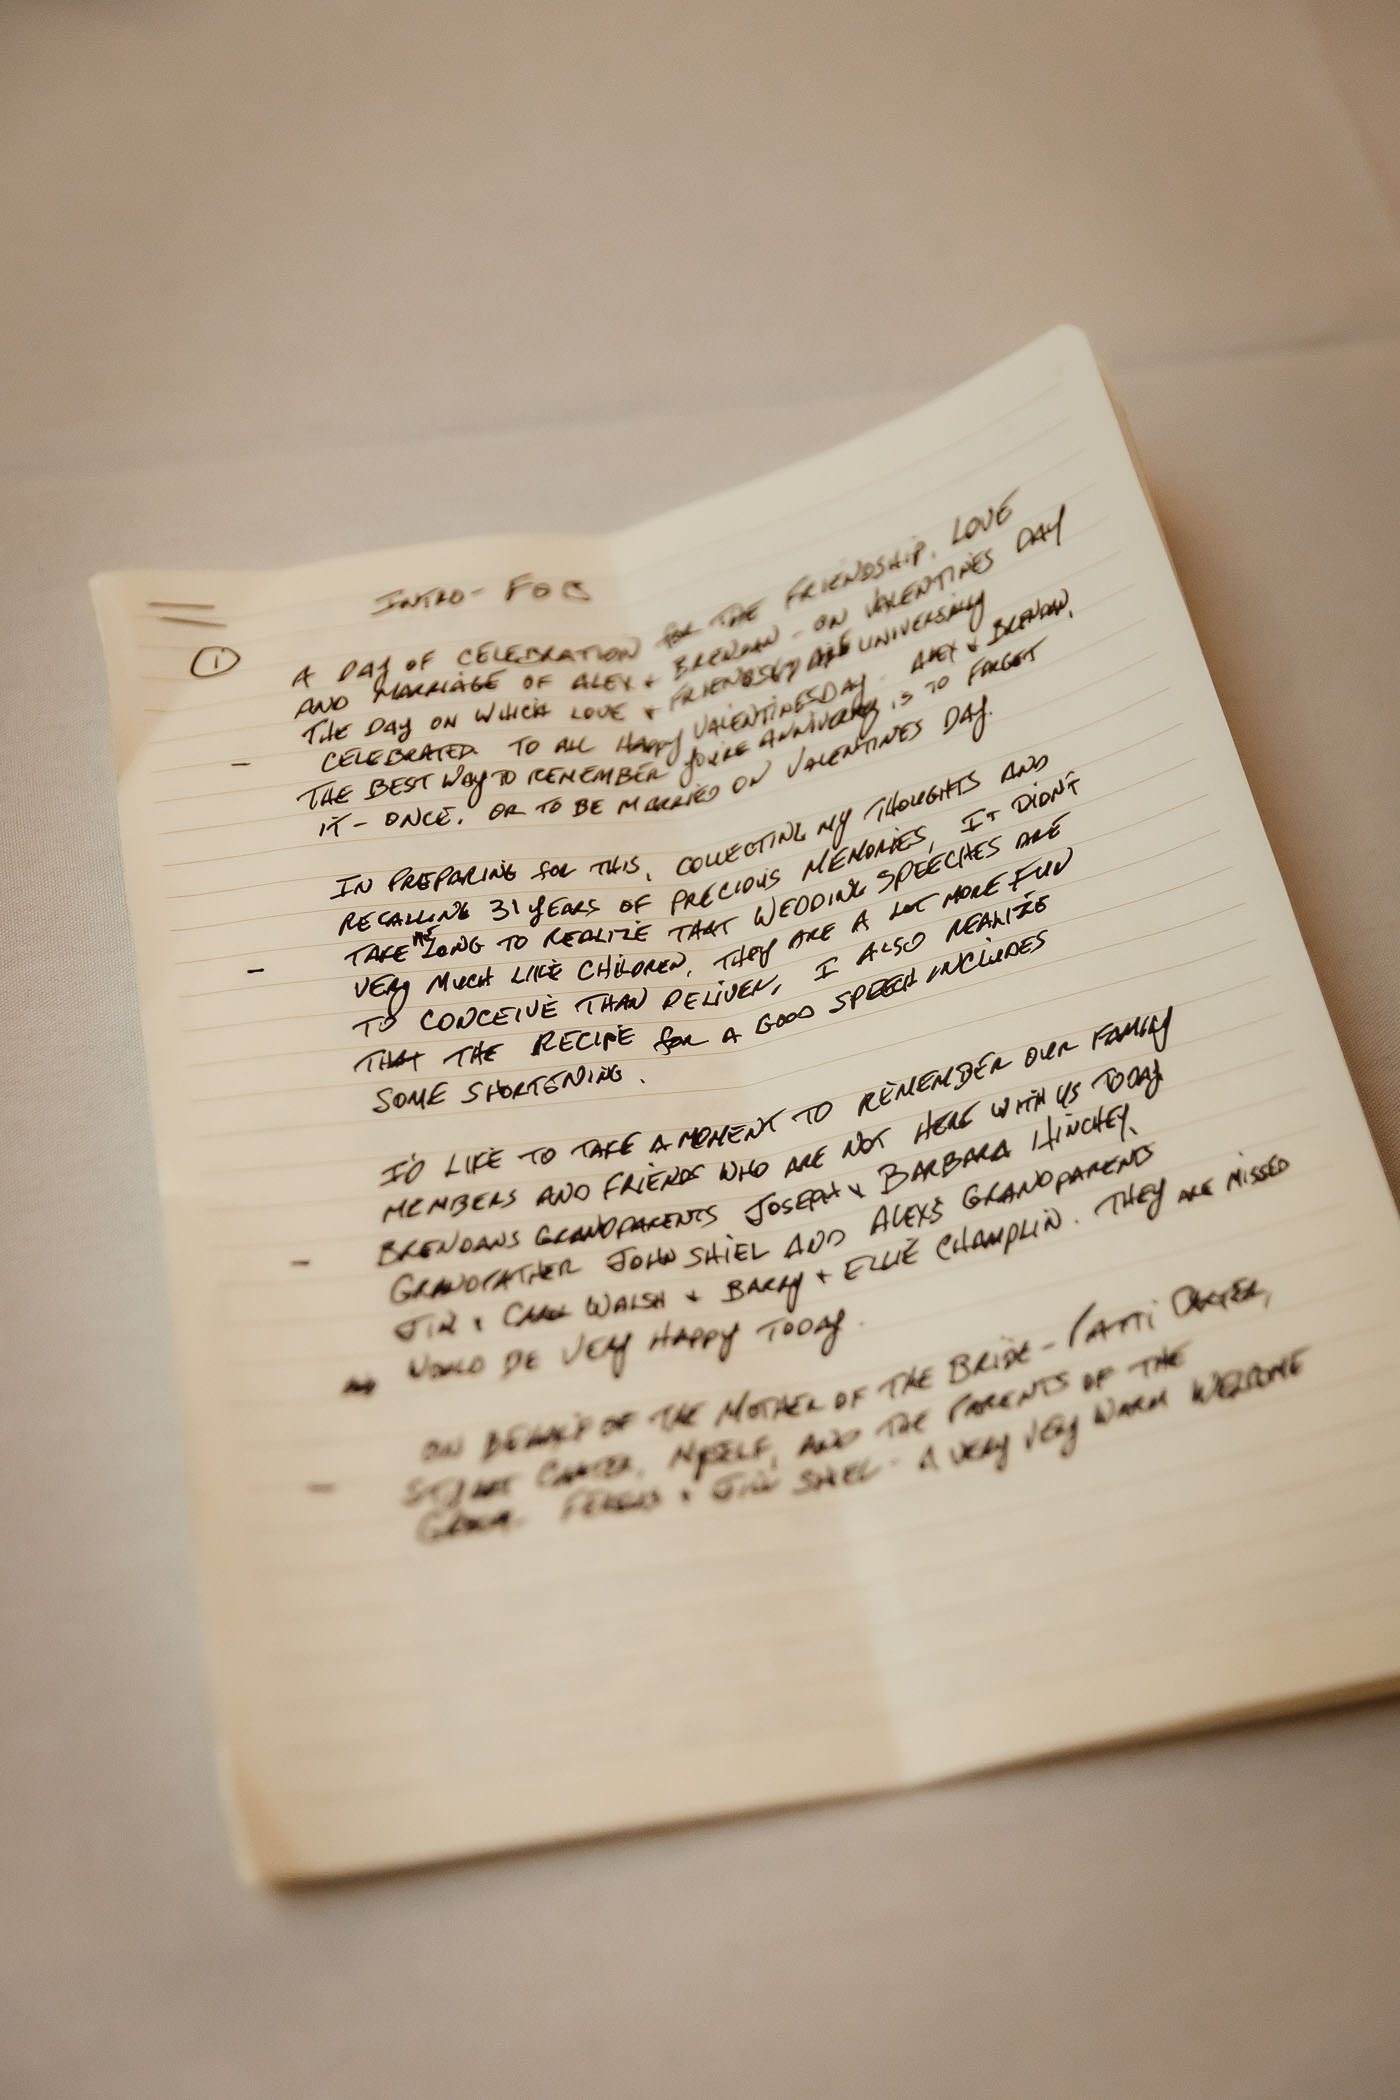 INTRO- FOB
① A DAY OF CELEBRATION FOR THE FRIENDSHIP, LOVE
AND MARRIAGE OF ALEX + BRENDAN - ON VALENTINES DAY
THE DAY ON WHICH LOVE + FRIENDSHIP ARE UNIVERSALLY
- CELEBRATED. TO ALL HAPPY VALENTINESDAY. ALEX + BRENDAN,
THE BEST WAY TO REMEMBER YOU'RE ANNIVERARY IS TO FORGET
IT - ONCE. OR TO BE MARRIED ON VALENTINES DAY.
IN PREPARING FOR THIS, COLLECTING MY THOUGHTS AND
RECALLING 31 YEARS OF PRECIOUS MEMORIES, IT DIDN'T
TAKE ME LONG TO REALIZE THAT WEDDING SPEECHES ARE
- VERY MUCH LIKE CHILDREN, THEY ARE A LOT MORE FUN
TO CONCEIVE THAN DELIVER, I ALSO REALIZE
THAT THE RECIPE FOR A GOOD SPEECH INCLUDES
SOME SHORTENING.
I'D LIKE TO TAKE A MOMENT TO REMEMBER OUR FAMILY
MEMBERS AND FRIENDS WHO ARE NOT HERE WITH US TODAY
- BRENDANS GRANDPARENTS JOSEPH + BARBARA HINCHEY,
GRANDFATHER JOHN SHIEL AND ALEXS GRANDPARENTS
JIM + CAROL WALSH + BARRY + ELLIE CHAMPLIN. THEY ARE MISSED
WOULD BE VERY HAPPY TODAY.
ON BEHALF OF THE MOTHER OF THE BRIDE - PATTI CARTER,
- STUART CARTER, MYSELF, AND THE PARENTS OF THE
GROOM. FERGUS + JILL SHIEL - A VERY VERY WARM WELCOME